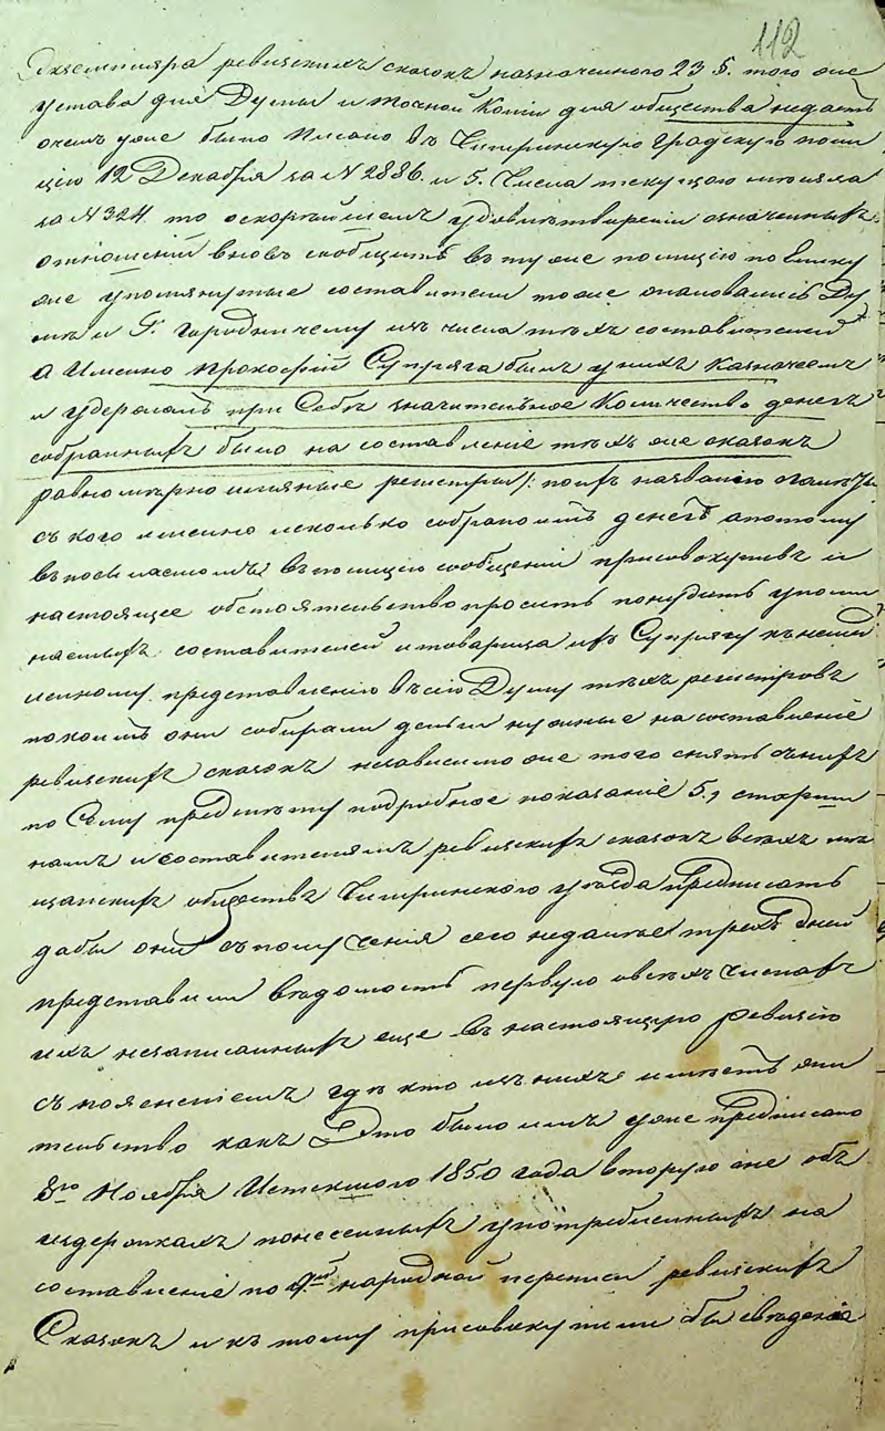 112
Экземпляра ревизскихъ сказокъ назначенного 23 §. того же
устава для Думы и точной копіи для общества недастъ
очемъ уже было писано въ Чигиринскую градскую поли
цію 12 Декабря за № 2886. и 5. Числа текущаго месяца
за № 324. то оскорѣйшемъ удовлетвореніи означенныхъ
отношеній вновь сообщить въ туже полицію поелику
же упомянутые составители тоже жаловались Ду
мѣ и Г. Городничему изъ числа тѣхъ составителей
А Именно Прокофій Супряга былъ у нихъ Казначеемъ
и удержалъ при Себѣ значительное Количество денегъ
собранныхъ было на составленіе тѣхъ же сказокъ
равномѣрно именные регистры
съ кого именно исколько собраноимъ денегъ апотому
въ полицію сообщеніи присовокупивъ и
настоящее обстоятельство просить понудить упомя
наемыхъ составителей и товарища ихъ Супрягу къ немед
ленному представленію въ сію Думу тѣхъ регистровъ
покоимъ они собирали деньги нужные на составленіе
ревизскихъ сказокъ независимо же того снять снихъ
по Сему предмѣту подробное показаніе 5., старши
намъ и составителямъ ревизскихъ сказокъ всѣхъ мѣ
щанскихъ обществъ Чигиринского уѣзда предписать
дабы они съ полученія сего недалѣе трехъ дней
представили вѣдомость первую овсѣхъ Числахъ
ихъ незаписанныхъ еще въ настоящую ревизію
съ поясненіемъ гдѣ кто изъ нихъ имѣетъ жи
тельство какъ Это было имъ уже предписано
8го Ноября Истекшого 1850 года вторую же объ
издержкахъ понесенныхъ употребленныхъ на
составленіе по 9й народной переписи ревизскихъ
Сказокъ и къ тому присовокупили бы свѣденія